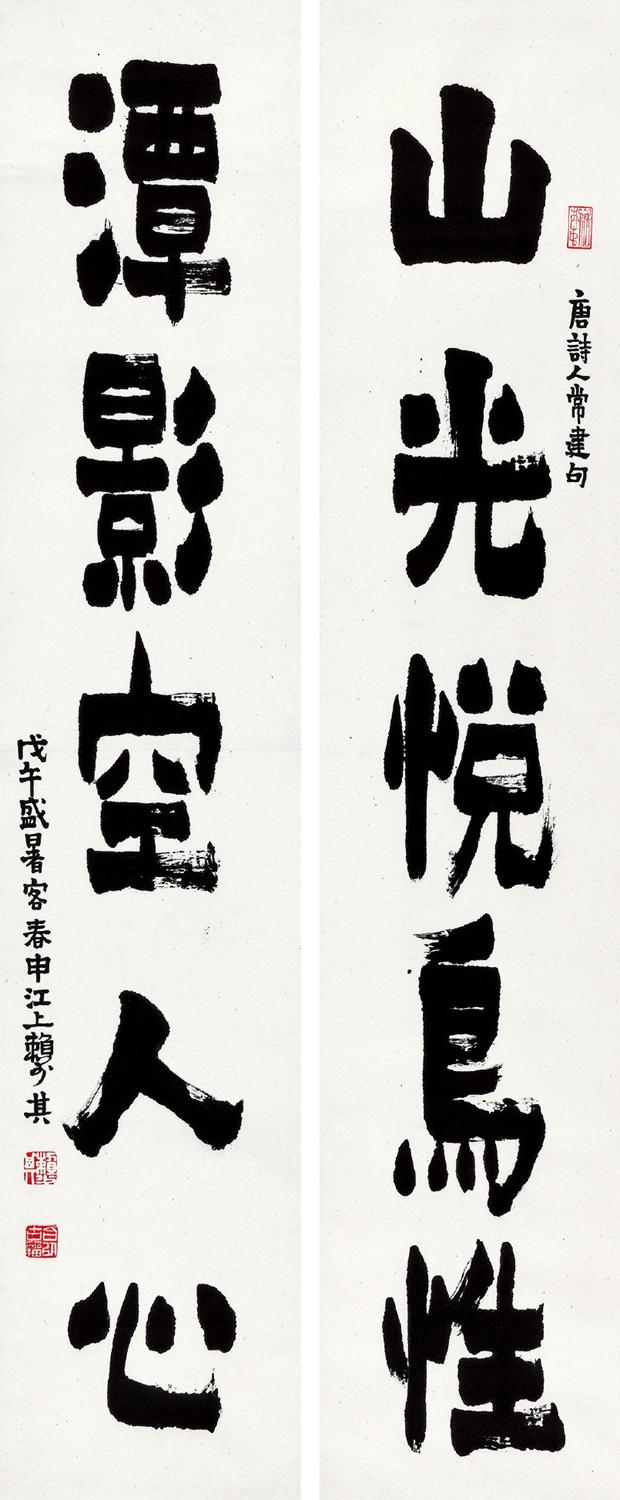 山光悅鳥性
唐詩人常建句
潭影空人心
戊午盛暑客春申江上賴少其